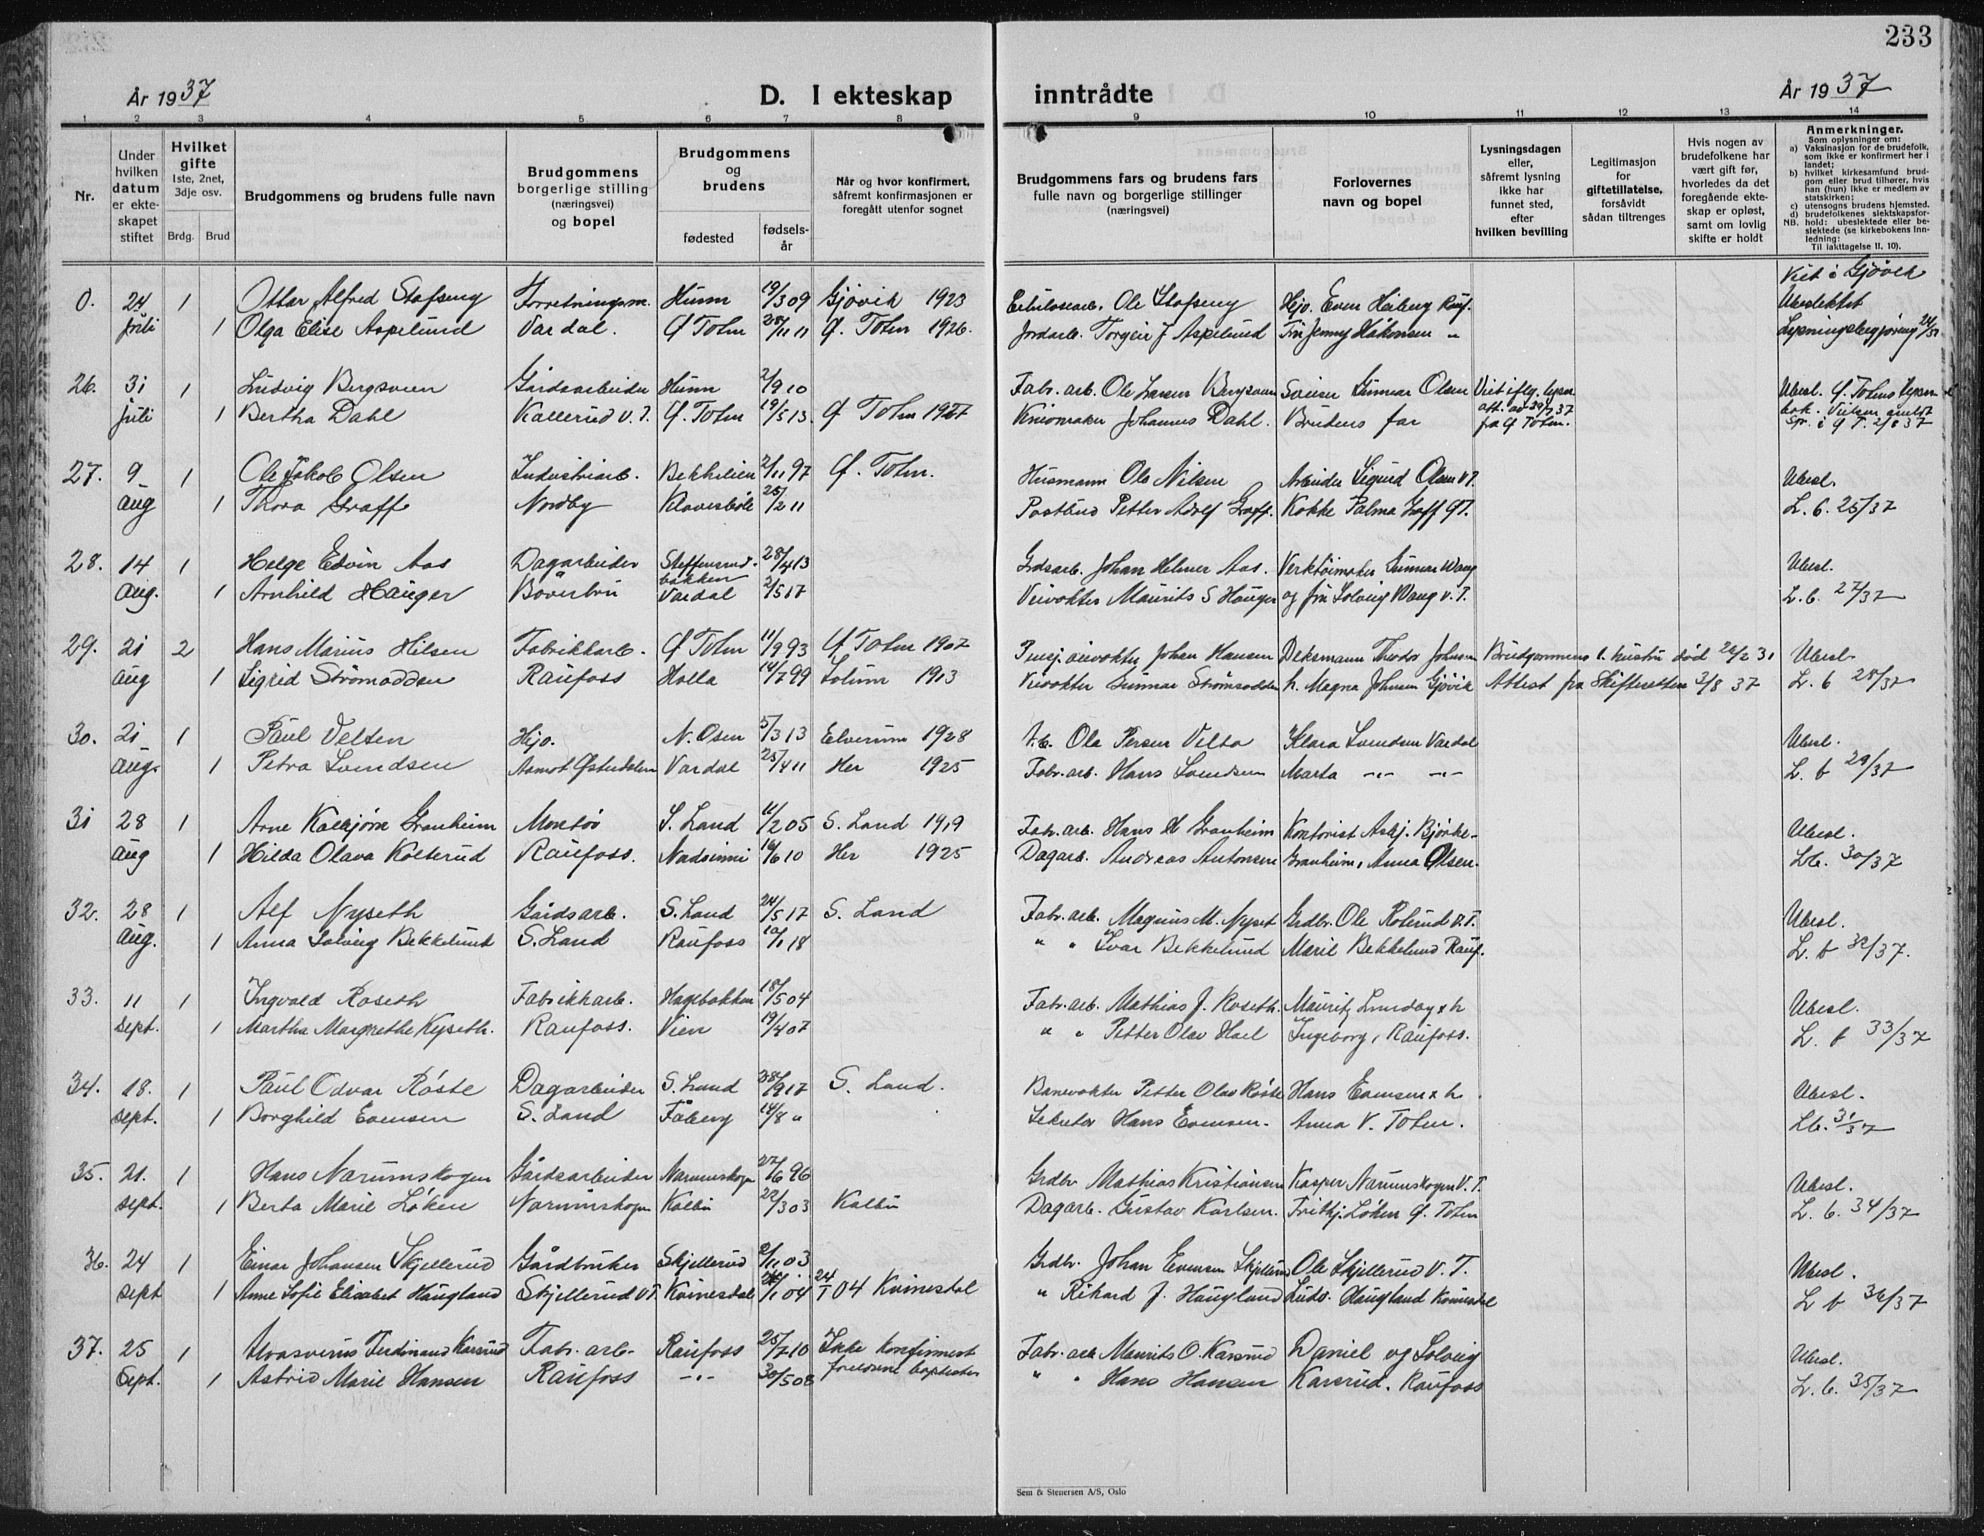 233
År 1937
D. I ekteskap inntrådte
År 1937
1 2 3 4 5 6 7 8 9 10 11 12 13 14
Nr.
Under hvilken datum er ekteskapet stiftet
Hvilket gifte 1ste, 2net, 3dje osv.
Brdg. Brud
Brudgommens og brudens fulle navn
Brudgommens borgerlige stilling (næringsvei) og bopel
Brudgommens og brudens
fødested
fødselsår
Når og hvor konfirmert, såfremt konfirmasjonen er foregått utenfor sognet
Brudgommens fars og brudens fars fulle navn og borgerlige stillinger (næringsvei)
Forlovernes navn og bopel
Lysningsdagen eller, såfremt lysning ikke har funnet sted, efter hvilken bevilling
Legitimasjon for giftetillatelse, forsåvidt sådan tiltrenges
Hvis nogen av brudefolkene har vært gift før, hvorledes da det foregående ekteskap er opløst, samt om lovlig skifte er holdt
Anmerkninger.
Som oplysninger om:
a) Vaksinasjon for de brudefolk, som ikke er konfirmert her i landet;
b) hvilket kirkesamfund brudgom eller brud tilhører, hvis han (hun) ikke er medlem av statskirken;
c) utensogns brudens hjemsted.
d) brudefolkenes slektskapsforhold: ubeslektede eller beslektede (se kirkebokens Innledning:
NB. Til iakttagelse II. 10).
Viet i Gjøvik
0. 24 1 Ottar Alfred Stafseng Forretningsm. Hunn 19/3 09 Gjøvik 1923 Ole Stafseng Hejo. Even Heiberg Rauf. Ubeslektet
juli 1 Olga Elise Aspelund Vardal. Ø Toten 28/11 11 Ø. Toten 1926. Jordarb. Torgeir J Aspelund Frk Jenny Håkensen " Lysningsbegjæring 24/37
26. 31 1 Ludvig Bergsveen Gårdsarbeider Hunn 2/9 10 Fabr. arb. Ole Larsen Bergsveen Gunnar Olsen Viet iflg. lysn. Ubesl. Ø. Totens
juli 1 Bertha Dahl Kallerud V. T. Ø. Toten 19/5 13 Ø Toten 1927 Johannes Dahl. Brudens far att. av 29/7 37 fra Ø Toten. i Ø T. 2/8 37
27. 9 1 Ole Jakob Olsen Industriarb. Bekkelien 2/11 97 Ø. Toten. Husmann Ole Nilsen Arbeider Sigurd Olsen V T. Ubesl.
aug 1 Thora Graff Nordby Klovesbøle 25/2 11 Postbud Petter Adolf Graff. Kokke Palma Graff ØT. L. b. 25/37
28. 14 1 Helge Edvin Aas Dagarbeider Steffensrudbakken 28/4 13 Grdsarb. Johan Helmer Aas. Verktøimaker Gunnar Wang Ubesl.
aug. 1 Arnhild Hauger Bøverbru Vardal 2/5 17 Veivokter Maurits S Hauger og fru Solveig Wang V. T. L. b. 27/37
29. 21 2 Hans Marius Hilsen Fabrikkarb. Ø Toten 11/9 93 Ø Toten 1907 Pensj. veivokter Johan Hansen Theodor Johnsen Brudgommens 1. hustru død 26/2 31 Ubesl.
aug 1 Sigrid Strømodden Raufoss Holla 14/7 99 Solum 1913 Veivokter Gunnar Strømsodden h. Magna Johnsen Gjøvik Attest fra Skifteretten 3/8 37 L. b 28/37
30. 21 1 Paul Velten Hejo. N. Osen 5/3 13 Elverum 1928 Ola Persen Velta Klara Svendsen Vardal Ubesl.
aug. 1 Petra Svendsen Aamot Østerdalen Vardal 25/4 11 Her 1925 Fabr. arb. Hans Svendsen Marta -"- -"- L. b 29/37
31 28 1 Arne Kolbjørn Granheim Montør S. Land 11/2 05 S. Land 1919 Fabr. arb. Hans H Granheim Kontorist Asbj. Bjørke- Ubesl.
aug 1 Hilda Olava Kolterud Raufoss. Nordsinni 16/6 10 Her 1925 Dagarb. Andreas Antonsen Granheim, Anna Olsen. Lb. 30/37
32. 28 1 Alf Nyseth Gårdsarb. S. Land 24/5 17 S. Land Fabr. arb. Magnus M. Nyset Grdbr. Ole Rolund V. T. Ubesl.
aug. 1 Anna Solveig Bekkelund S. Land Raufoss 10/1 18 " " Ivar Bekkelund Marie Bekkelund Rauf. L. b 32/37.
33. 11 1 Ingvald Roseth Fabrikkarb. Hagebakken 18/5 04 Fabr. arb. Mathias J. Roseth. Mauritz Lunday & h Ubesl.
sept. 1 Martha Margrethe Kyseth. Raufoss. Vien 19/4 07 " " Petter Olav Hoel Ingeborg, Raufoss. L. b 33/37
34. 18. 1 Paul Odvar Røste Dagarbeider S. Land 28/9 17 S. Land. Banevokter Petter Olav Røste Hans Evensen & h Ubesl.
sept. 1 Borghild Evensen S. Land Fåberg 14/8 " Sekretær Hans Evensen. Anna V. Toten. Lb. 31/37
35. 21. 1 Hans Narumskogen Gårdsarbeider Narumskogen 27/6 96 Grdbr Mathias Kristiansen Kasper Narumskogen V. T. Ubesl.
sept. 1 Berta Marie Løken Narumskogen Kolbu 22/3 03 Kolbu Dagarb. Gustav Karlsen. Fritkj. Løken Ø. Toten L. b. 34/37
36. 24 1 Einar Johansen Skjellerud Gårdbruker Skjellerud 2/11 03 Grdbr. Johan Evensen Skjellerud Ole Skjellerud V. T. Ubesl.
sept 1 Anne Sofie Elisabet Haugland Skjellerud V T. Kvinesdal 24/1 04 24/I 04 Kvinesdal " Rikard J. Haugland Ludv. Haugland Kvinesdal L b 36/37
37. 25 1 Ahasverus Ferdinand Karsrud Fabr. arb. Raufoss 25/7 10 Ikke konfirmert Fabr. arb Maurits O. Karsrud Daniel og Solveig Ubesl.
Sept. 1 Astrid Marie Hansen Raufoss -"- 30/5 08 foreldrene baptister " " Hans Hansen Karsrud. Raufoss L. b. 35/37
Sem & Stenersen A/S, Oslo